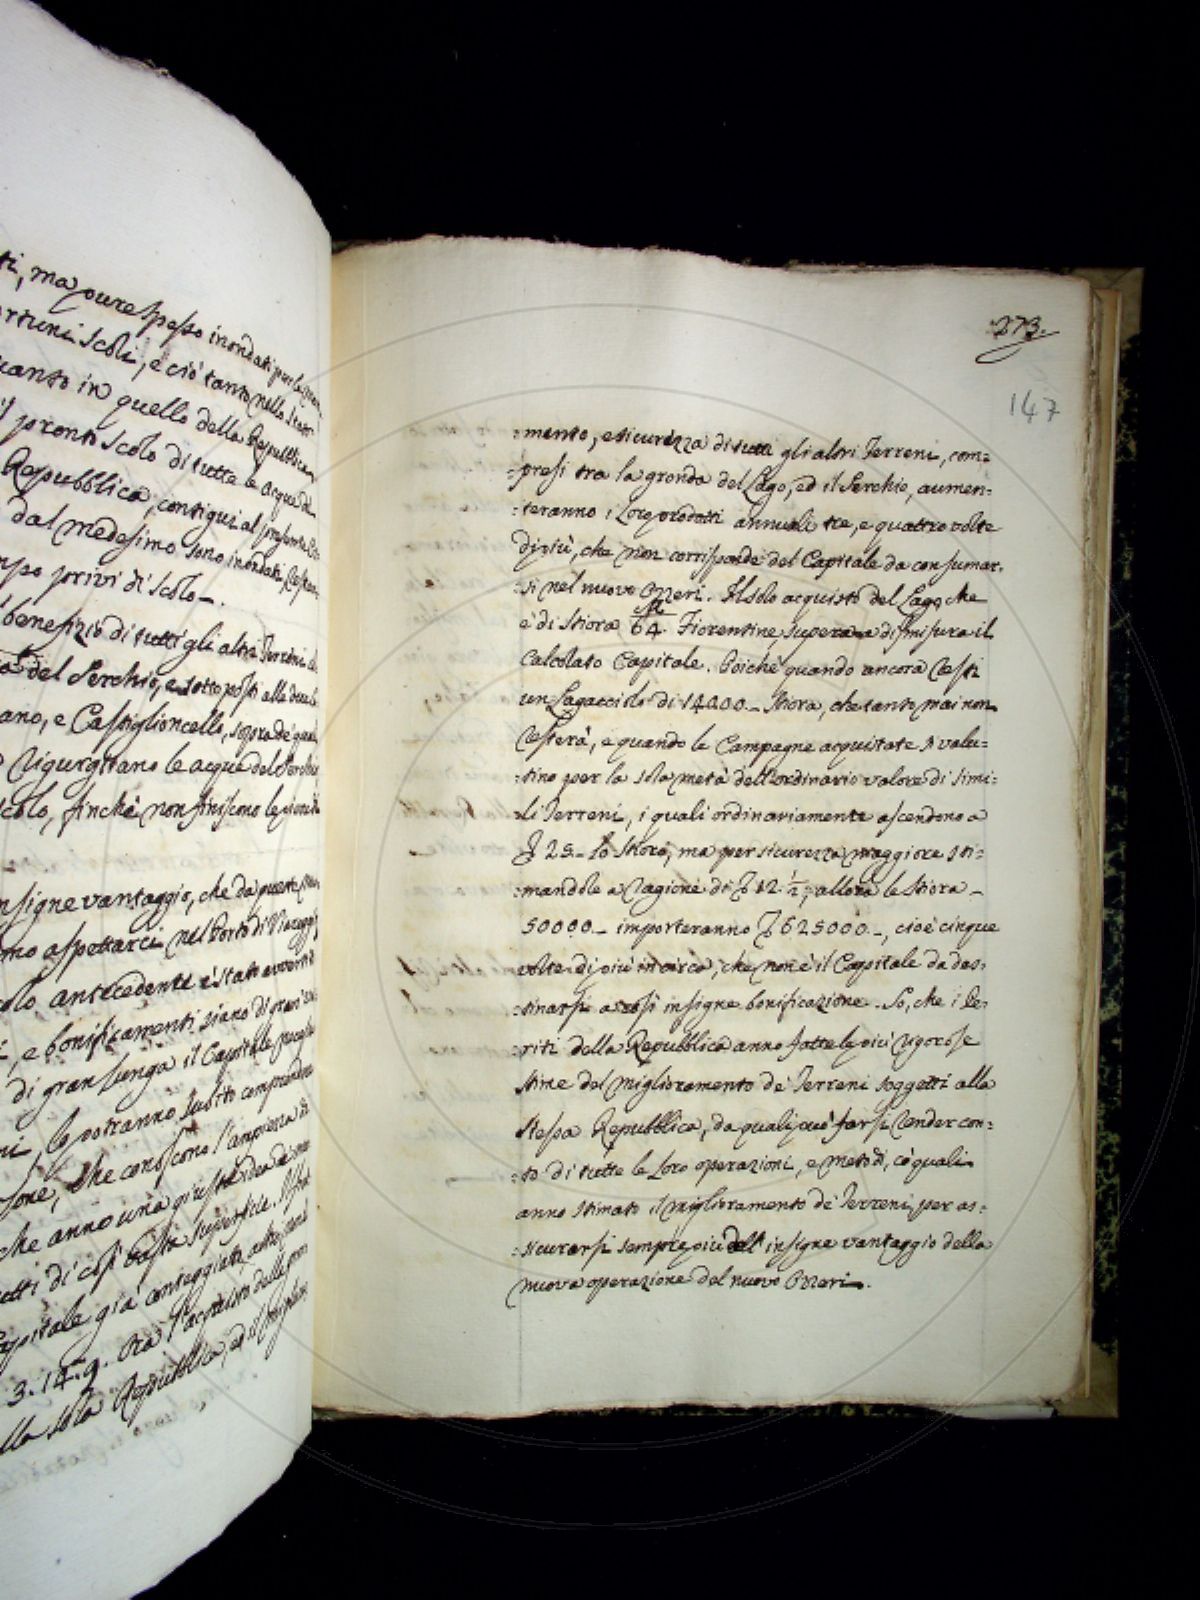 ti, ma pure spesso inondati per la
rtuni scoli, e ciò tanto nello Stato
uanto in quello della Repubblica
il pronto scolo di tutte le acque di
Repubblica, contigui al presente
dal medesimo sono inondati, e
mpo privi di scolo.
benefizio di tutti gli altri Terreni
del Serchio, e sottoposti alle due
ano, e Castiglioncello, sopra de quali
rigurgitano le acque del Serchio
scolo, finchè non finiscono le piene
insigne vantaggio, che da queste
mo aspettarci nel Porto di Viareggio,
colo antecedente è stato avvertito
, e bonificamenti siano di gran
di gran lunga il Capitale
ni, lo potranno subito comprendere
sone, che conoscono l'ampiezza di
che anno una giusta idea de
utti di così vasta superficie. Il
Capitale già conteggiato,
3.14.9. Ora l'acquisto delle
lla sola Repubblica, ed il
273.
147
:mento, e sicurezza di tutti gli altri Terreni, com=
:presi tra la gronda del Lago, ed il Serchio, aumen:
:teranno i loro prodotti annuali tre, e quattro volte
di più, che non corrisponde del Capitale da consumar.
:si nel nuovo Ozzeri. Il solo acquisto del Lago, che
è di Stiora 64. Fiorentine supera a dismisura il
calcolato Capitale. Poichè quando ancora resti
un Lagacciolo di 14000.- Stiora, che tanto mai non
resterà, e quando le Campagne acquistate si valu=
:tino per la sola metà dell'ordinario valore di simi=
:li Terreni, i quali ordinariamente ascendono a
25.- lo Stioro, ma per sicurezza maggiore sti=
:mandole a ragione di 12.½; allora le Stiora -
50000.- importeranno 625000.-, cioè cinque
volte di più in circa, che non è il Capitale da des:
:tinarsi a così insigne bonificazione. So, che i Pe:
:riti della Repubblica anno fatte le più rigorose
stime del miglioramento de' Terreni soggetti alla
stessa Repubblica, da quali può farsi render con:
:to di tutte le loro operazioni, e metodi, co' quali
anno stimato il miglioramento de' Terreni, per as:
:sicurarsi sempre più dell' insigne vantaggio della
nuova operazione del nuovo Ozzeri.